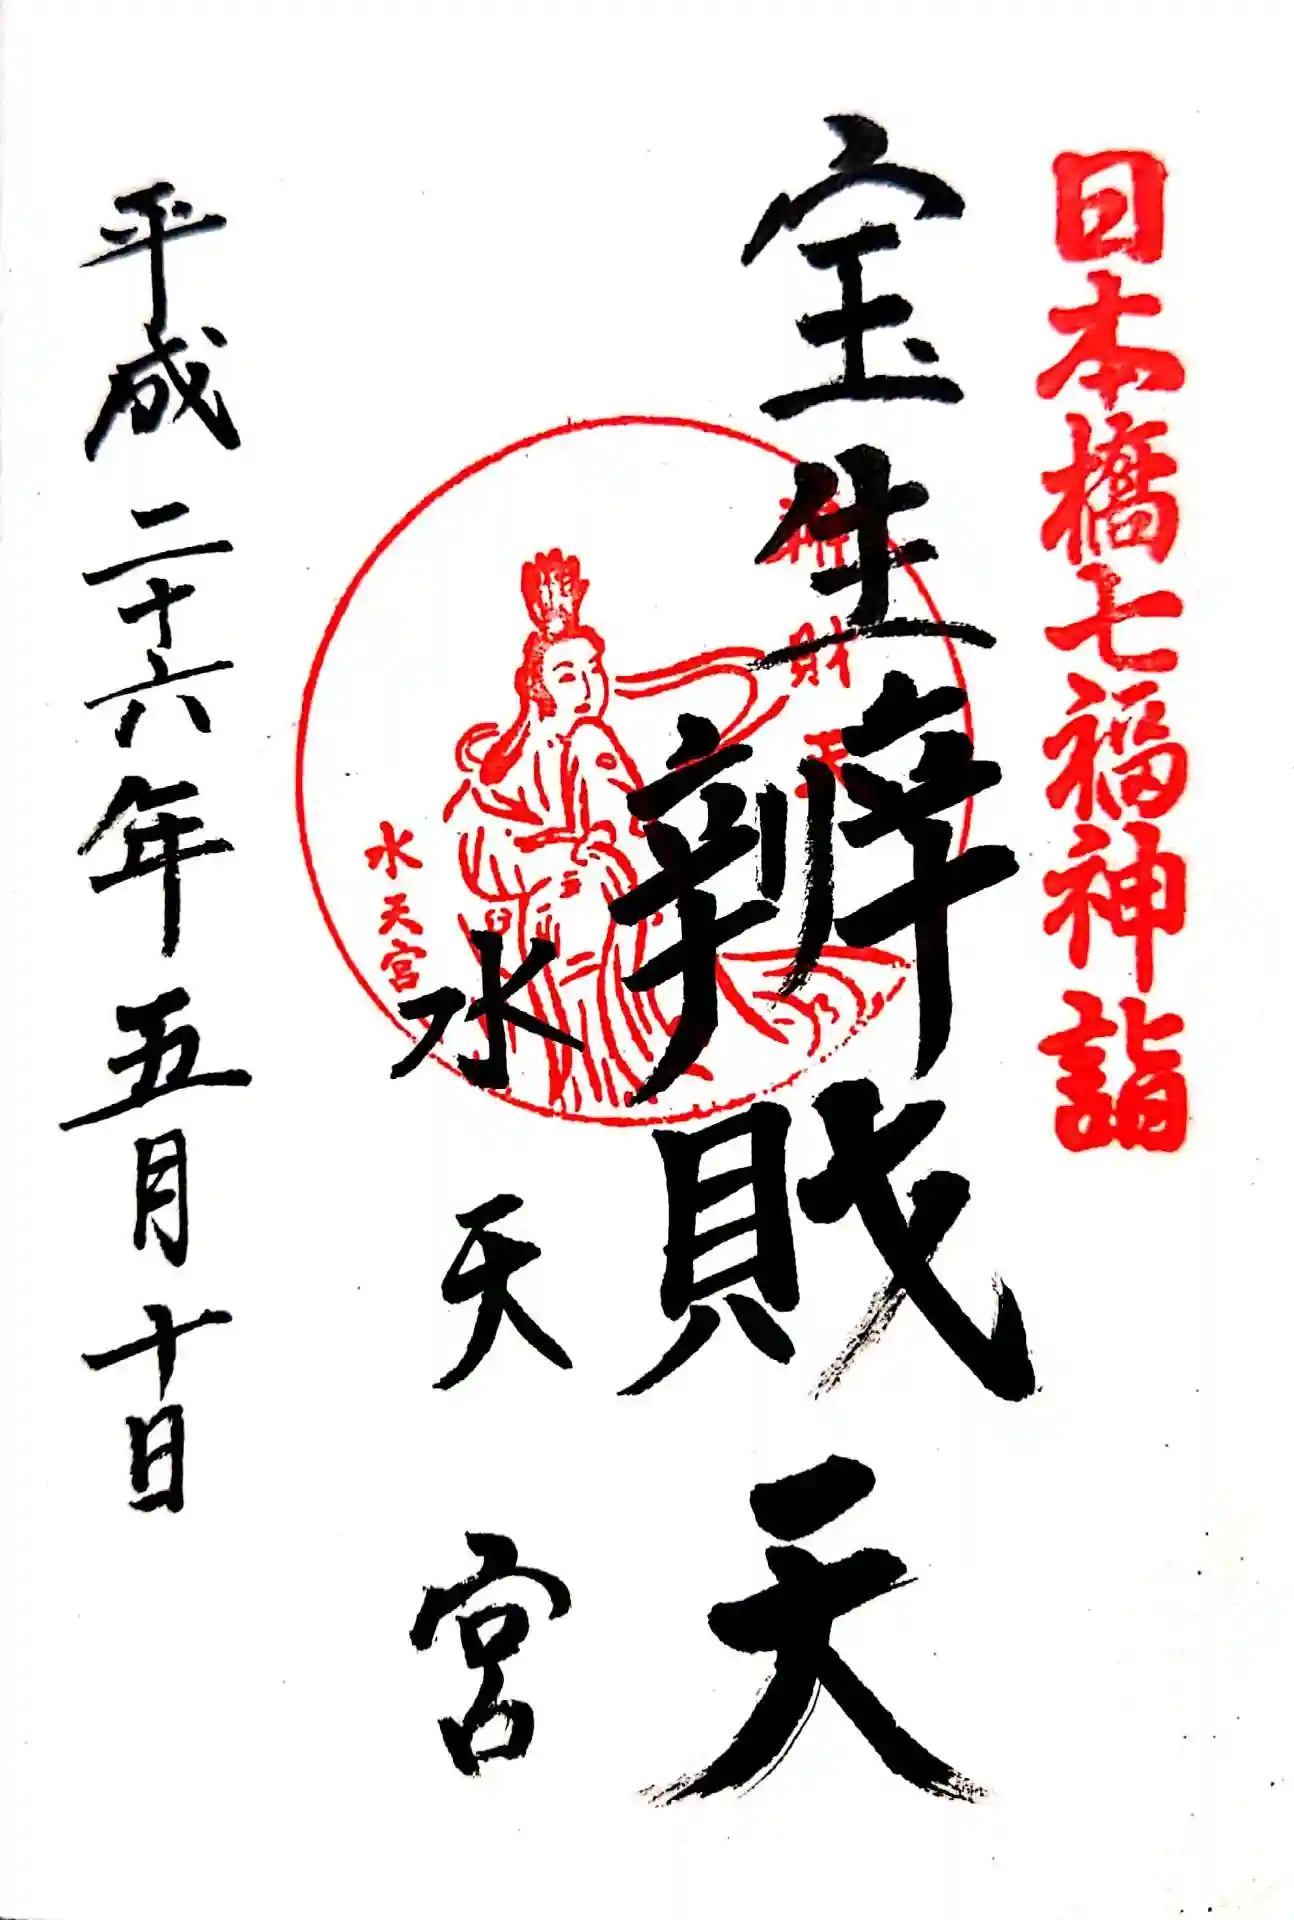 日本橋七福神詣
宝生辨財天
辨財天
水天宮
水天宮
平成二十六年五月十日